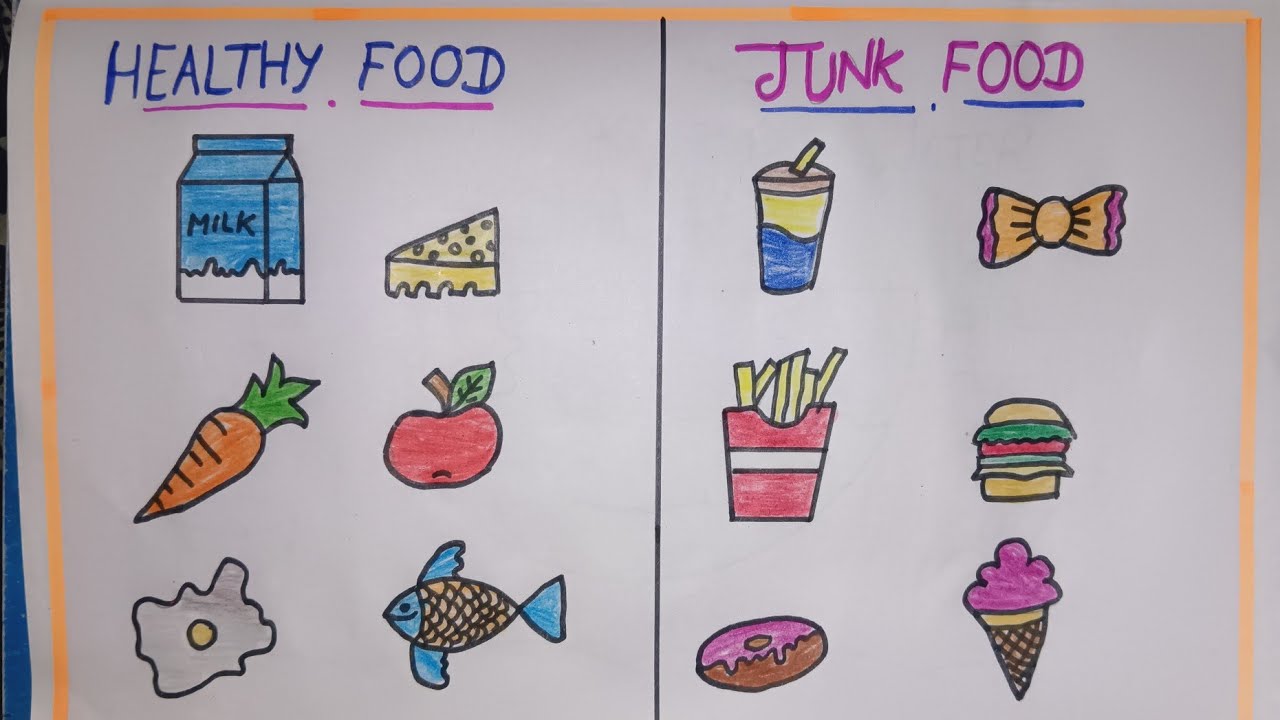 HEALTHY FOOD
JUNK FOOD
MILK